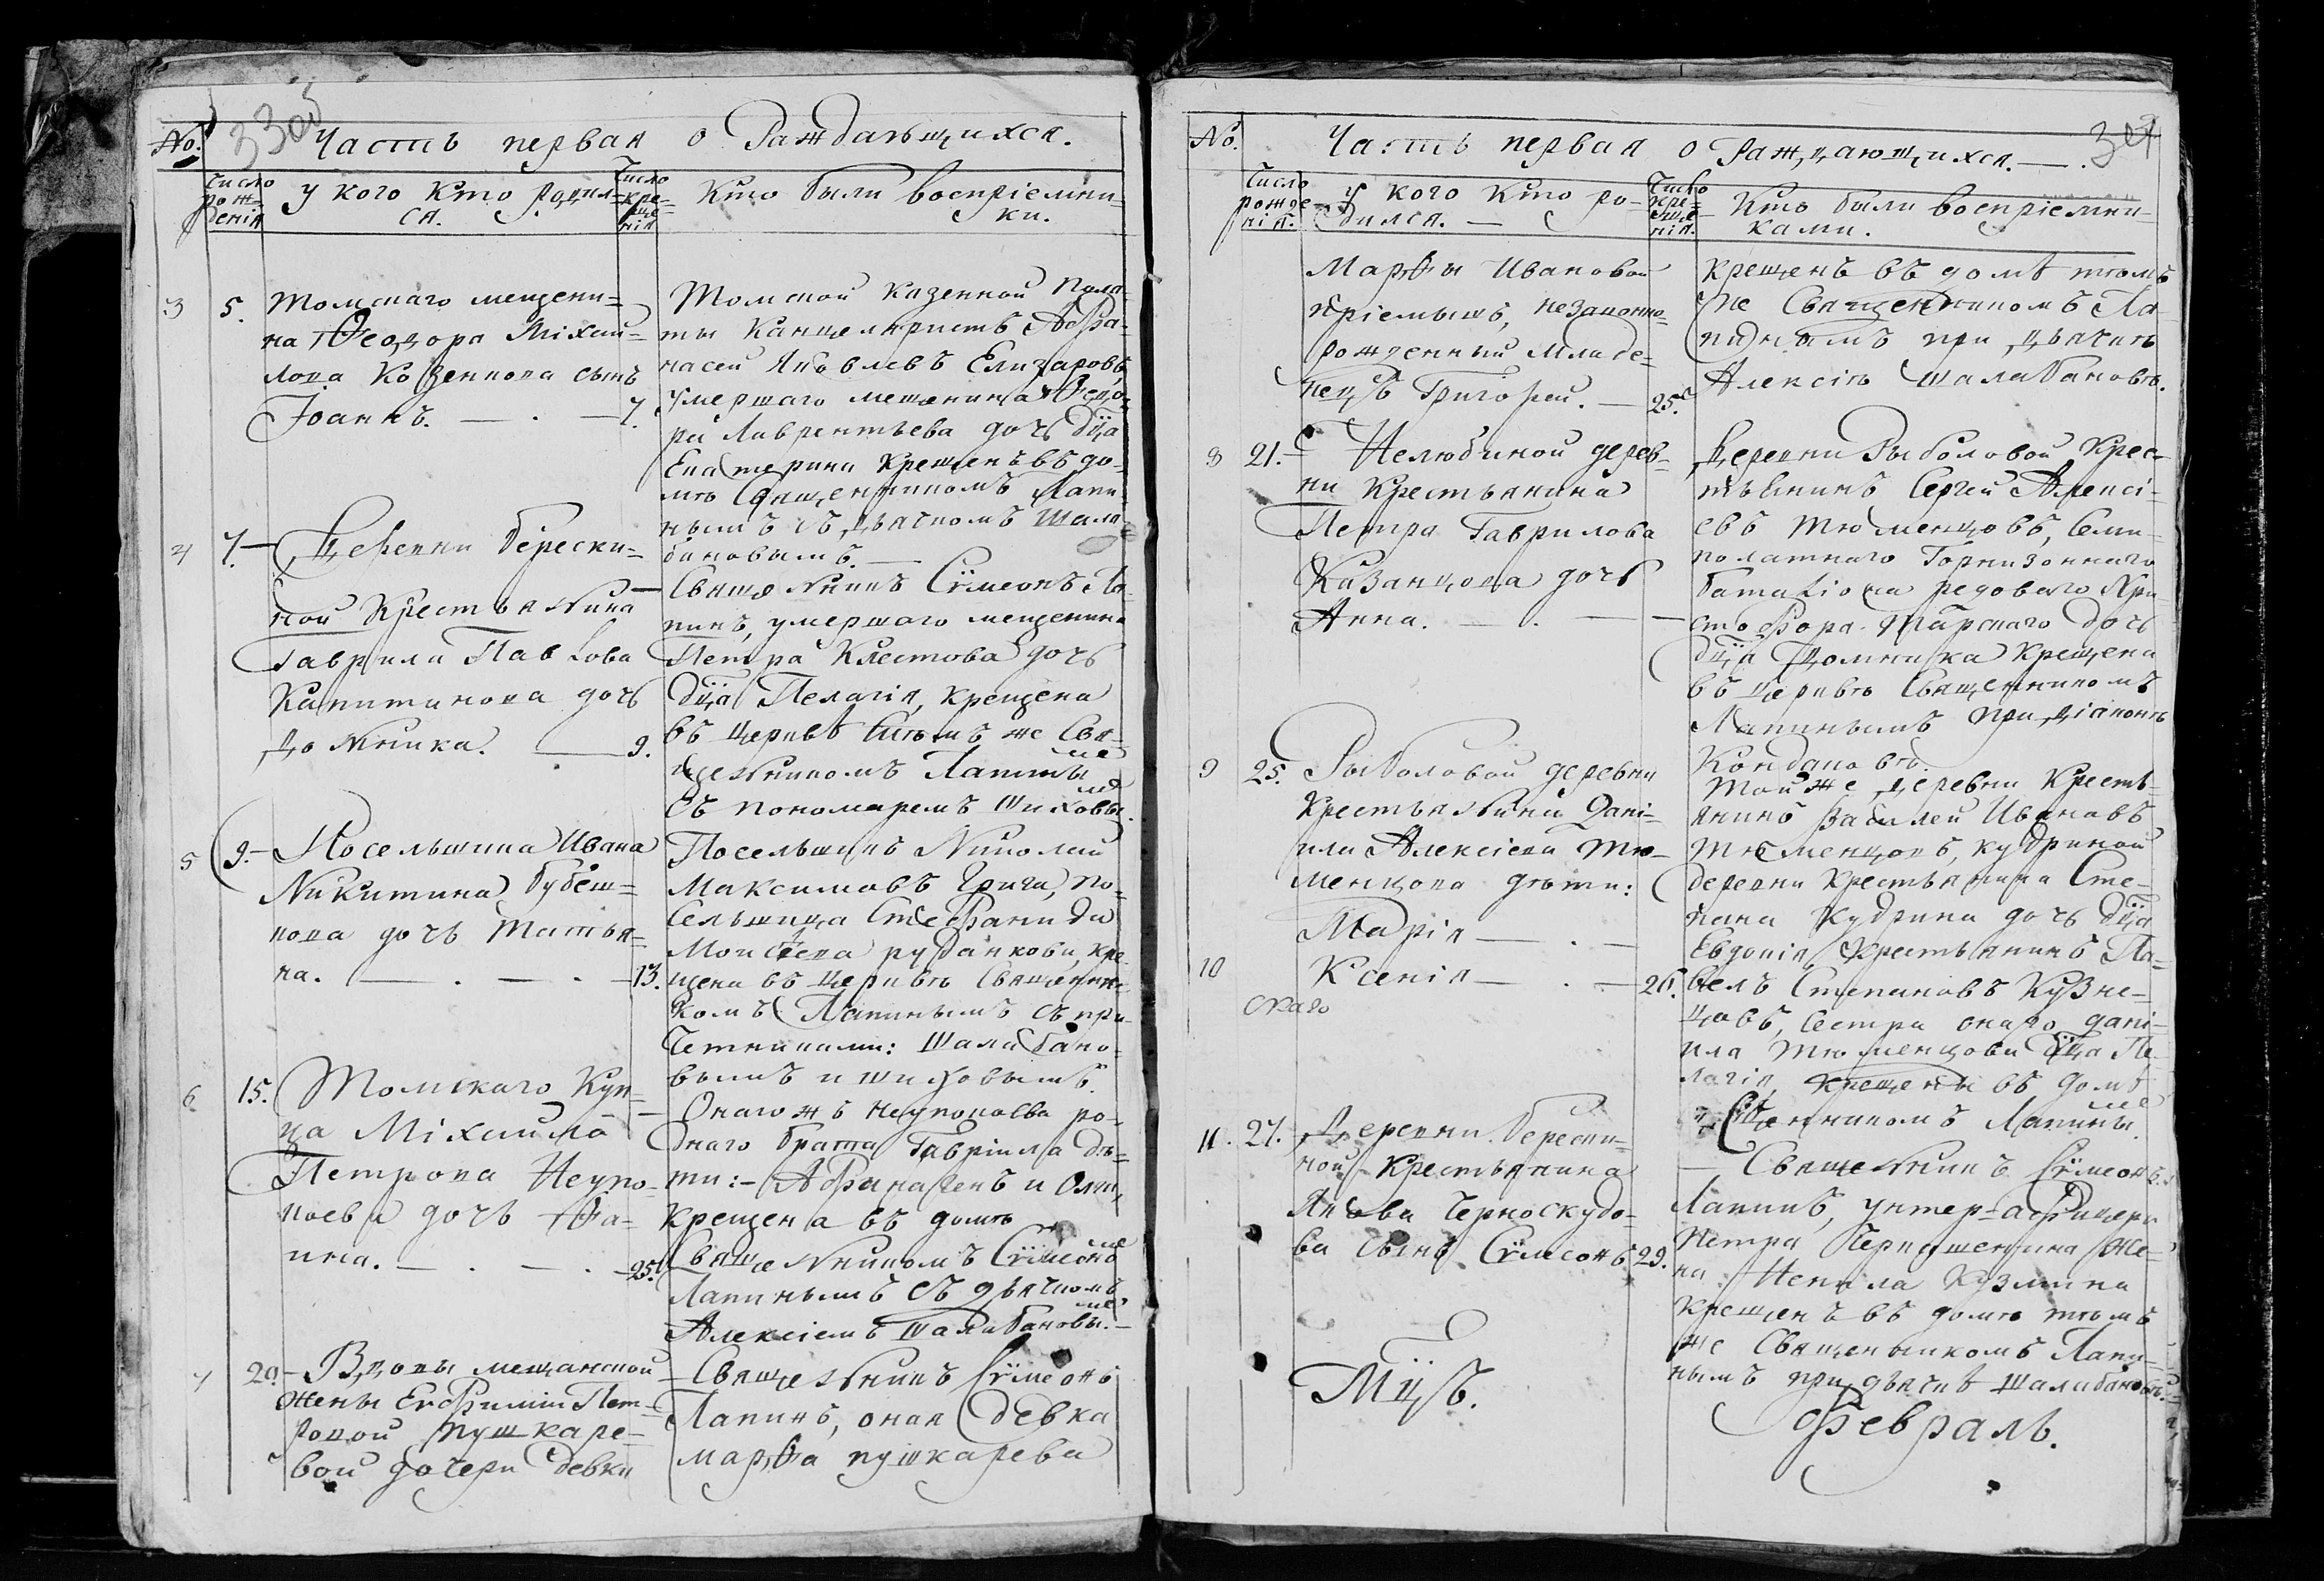 33об
№. Часть первая о Раждающихся.
Число рождения
у кого кто родил=ся.
Число крещенія
Кто были воспріемники.
3 5. Томскаго мещени=
на Ѳеодора Міхаи=
лова Козеннова сынъ
Іоаннъ. — . — 7.
Томской казенной пала=
ты канцеляристъ Афа=
насей Яковлевъ Елизаровъ,
умершаго мещенина Ѳедо=
ра Лаврентьева дочь дѣца
Екатерина крещенъ въ до=
мѣ Священникомъ Лапи=
нымъ съ дьячкомъ Шала=
бановымъ. —
4 7. — Деревни Берески=
ной Крестьянина
Гаврила Павлова
Капитанова дочь
Домника. — 9.
Священникъ Сѵмеонъ Ла=
пинъ, умершаго мещенина
Петра Клестова дочь
дѣца Пелагія, крещена
въ церквѣ симъ же Свя=
щенникомъ Лапинымъ
съ пономаремъ Шиховымъ.
5 9. — Посельшика Ивана
Никитина Бубеш=
нова дочь Татья=
на. — . — . — 13.
Посельшикъ Николай
Максимовъ Грига, по=
сельшица Стефанида
Моисѣева Руданкова, кре=
щена въ церквѣ Священни=
комъ Лапинымъ съ при=
четниками: Шалабано=
вымъ и Шиховымъ.
6 15. Томскаго Куп=
ца Міхаила
Петрова Неупо=
коева дочь Фа=
ина. — . — . — 25.
— Онаго жъ Неупокоева ро=
днаго брата Гавріила дѣ=
ти: — Афанасей и Олга,
крещена въ домѣ
Священникомъ Сѵмеономъ
Лапинымъ съ дьячкомъ
Алексіемъ Шалабановымъ. —
7 20. — Вдовы мещанской
жены Евфиміи Пет=
ровой Пушкаре=
вой дочери девки
— Священникъ Сѵмеонъ
Лапинъ, оная девка
Марѳа Пушкарева
34
№. Часть первая о Раждающихся. — .
Число рожденія.
у кого кто ро=дился. —
Число крещенія.
Кто были воспріемни=ками.
Марѳы Ивановой
пріемышъ, незаконно=
рожденный младе=
нецъ Григорей. — 25.
крещенъ въ домѣ тѣмъ
же Священникомъ Ла=
пинымъ при дьячкѣ
Алексіѣ Шалабановѣ.
8 21. — Нелюбиной дерев=
ни Крестьянина
Петра Гаврилова
Казанцова дочь
Анна. — . — —
Деревни Рыболовой Крес=
тьянинъ Сергей Алексі=
евъ Тюменцовъ, Семи=
полатнаго Горнизоннаго
баталіона редоваго Хри=
стофора Татарскаго дочь
дѣца Домника крещена
въ церквѣ Священникомъ
Лапинымъ при діаконѣ
Кондаковѣ.
9 25. Рыболовой деревни
Крестьянина Дані=
ила Алексіева Тю=
менцова дѣти:
Марія — . —
10 Ксенія — . — 26.
Тойже деревни Кресть=
янинъ Василей Ивановъ
Тюменцовъ, Кудриной
деревни Крестьянина Сте=
пана Кудрина дочь дѣца
Евдокія, Крестьянинъ Па=
велъ Степановъ Кузне=
цовъ, сестра онаго Дані=
ила Тюменцова дѣца Пе=
лагія, крещены въ домѣ
Священникомъ Лапинымъ.
11. 27. Деревни Берески=
ной Крестьянина
Якова Черноскудо=
ва сынъ Сѵмеонъ 29.
— Священникъ Сѵмеонъ
Лапинъ, унтер=афицера
Петра Чернышенина же=
на Ненила Кузмина
крещенъ въ домѣ тѣмъ
же Священникомъ Лапи=
нымъ при дьячкѣ Шалабановѣ.
Мцъ. Февраль.